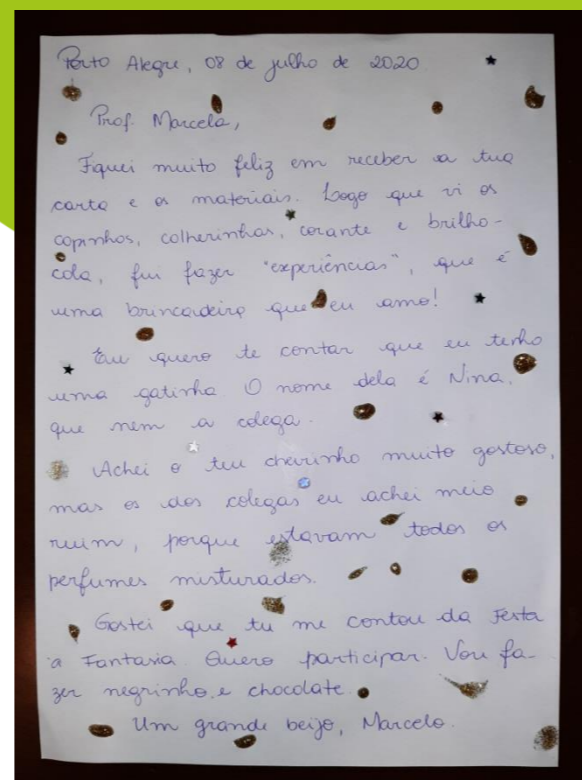 Porto Alegre, 08 de julho de 2020
Prof. Marcela,
Fiquei muito feliz em receber a tua
carta e os materiais. Logo que vi os
copinhos, colherinhas, corante e brilho-
cola, fui fazer "experiências", que é
uma brincadeira que eu amo!
Eu quero te contar que eu tenho
uma gatinha. O nome dela é Nina,
que nem a colega.
Achei o teu cheirinho muito gostoso,
mas os dos colegas eu achei meio
ruim, porque estavam todos os
perfumes misturados.
Gostei que tu me contou da Festa
a Fantasia. Quero participar. Vou fa-
zer negrinho e chocolate.
Um grande beijo, Marcelo.